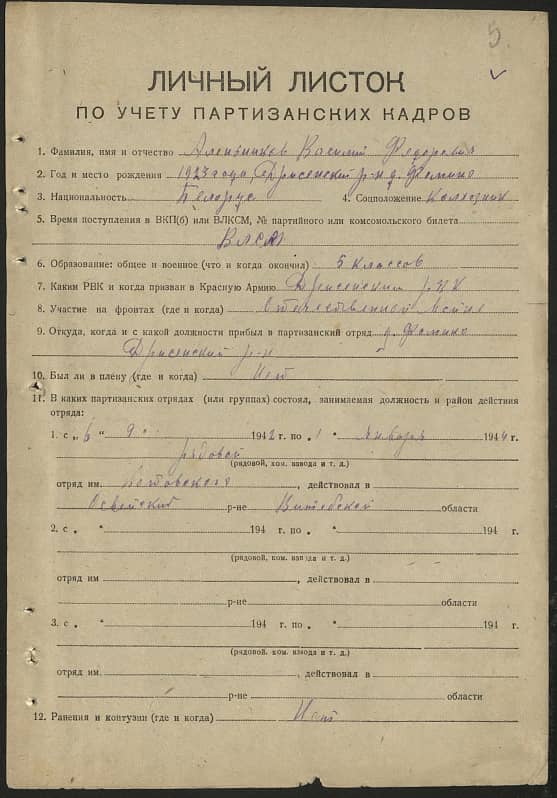 5.
ЛИЧНЫЙ ЛИСТОК
ПО УЧЕТУ ПАРТИЗАНСКИХ КАДРОВ
1. Фамилия, имя и отчество Василий Федорович
2. Год и место рождения 1923 года, Дрисенский р-н д. Фомино
3. Национальность Белорус 4. Соцположение Колхозник
5. Время поступления в ВКП(б) или ВЛКСМ, № партийного или комсомольского билета
6. Образование: общее и военное (что и когда окончил) 5 классов
7. Каким РВК и когда призван в Красную Армию Дрисенским
8. Участие на фронтах (где и когда) Отечественной войне
9. Откуда, когда и с какой должности прибыл в партизанский отряд д. Фомино
Дрисенский р-н
10. Был ли в плену (где и когда) Нет
11. В каких партизанских отрядах (или группах) состоял, занимаемая должность и район действия
отряда:
1. с „ 6 “ 9 1942 г. по „ 1 “ января 1944 г.
рядовой
(рядовой, ком. взвода и т. д.)
отряд им. , действовал в
Освейский р-не Витебской области
2. с „ “ 194 г. по „ “ 194 г.
(рядовой, ком. взвода и т. д.)
отряд им , действовал в
р-не области
3. с „ “ 194 г. по „ “ 194 г.
(рядовой, ком. взвода и т. д.)
отряд им. , действовал в
р-не области
12. Ранения и контузии (где и когда) Нет